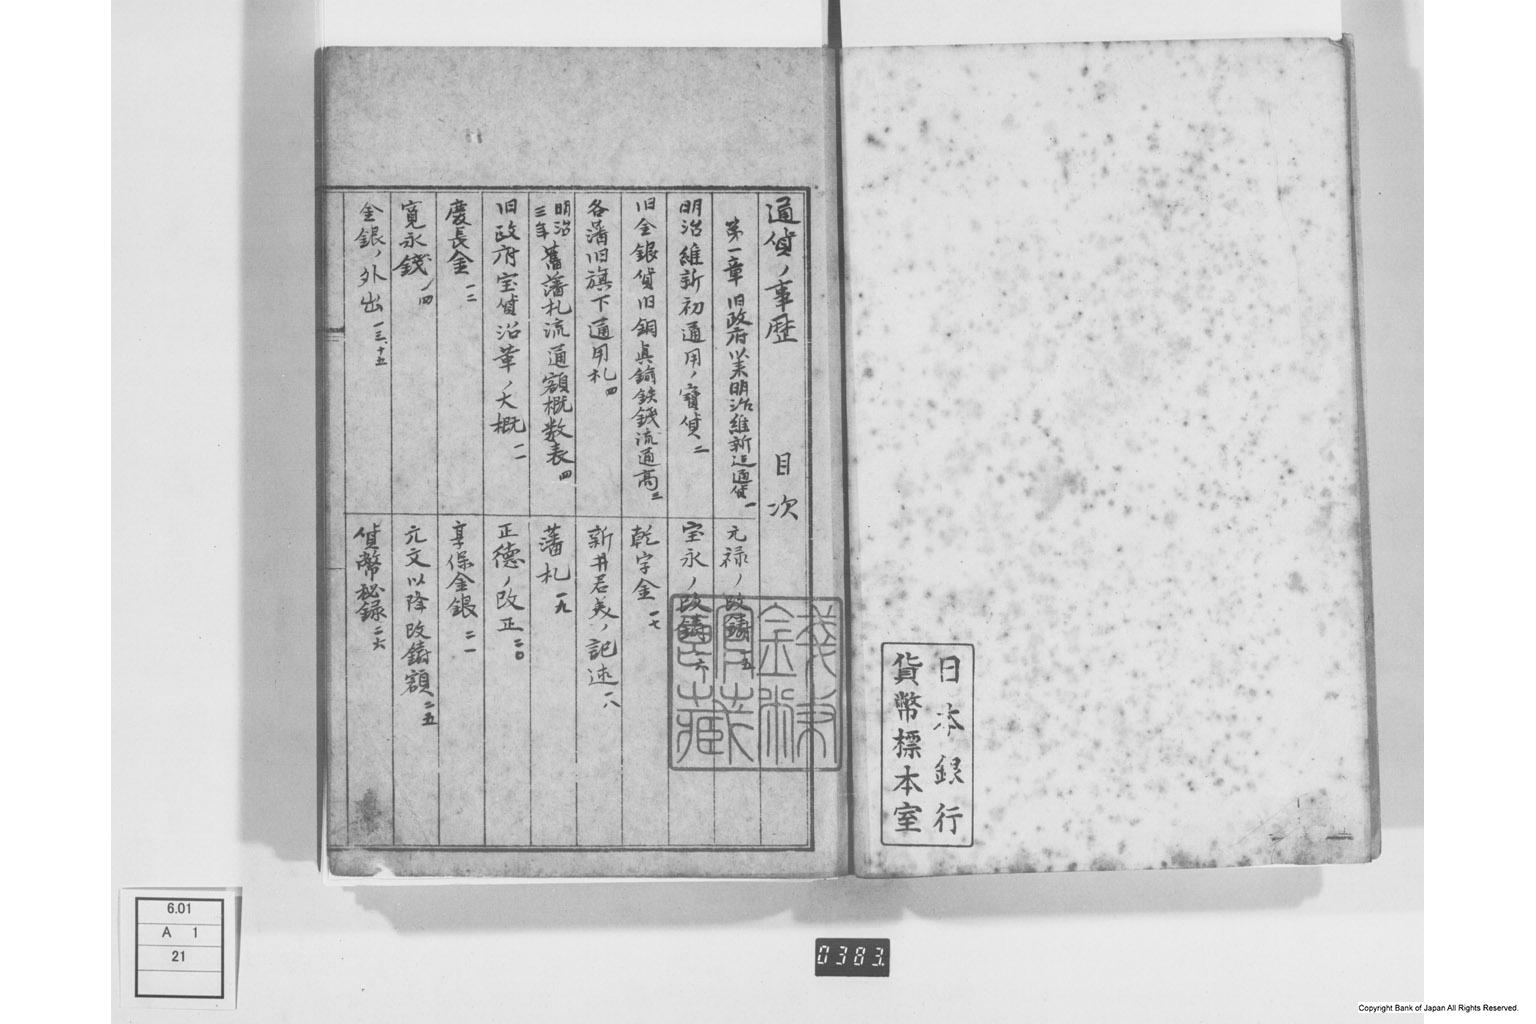 日本銀行
貨幣標本室
通貨ノ事歴 目次
第一章 旧政府以来明治維新迄通貨 一
明治維新初通用ノ寳貨 二
旧金銀貨旧銅真鍮鉄錢流通高 三
各藩旧旗下通用札 四
明治三年 舊藩札流通額概数表 四
旧政府宝貨沿革ノ大概 一一
慶長金 一二
寛永錢 一四
金銀ノ外出 一三、十五
元禄ノ改鋳 一五
宝永ノ改鋳 一六
乾字金 一七
新井君美ノ記述 一八
藩札 一九
正德ノ改正 二〇
享保金銀 二一
元文以降改鋳額 二五
貨幣秘録 二六
錢幣館藏
6.01
A 1
21
0383.
Copyright Bank of Japan All Rights Reserved.